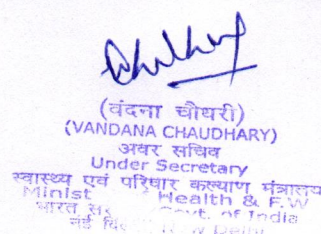 (वंदना चौधरी)
(VANDANA CHAUDHARY)
अवर सचिव
Under Secretary
स्वास्थ्य एवं परिवार कल्याण मंत्रालय
Minist Health & F.W
भारत Govt. of India
नई Delhi